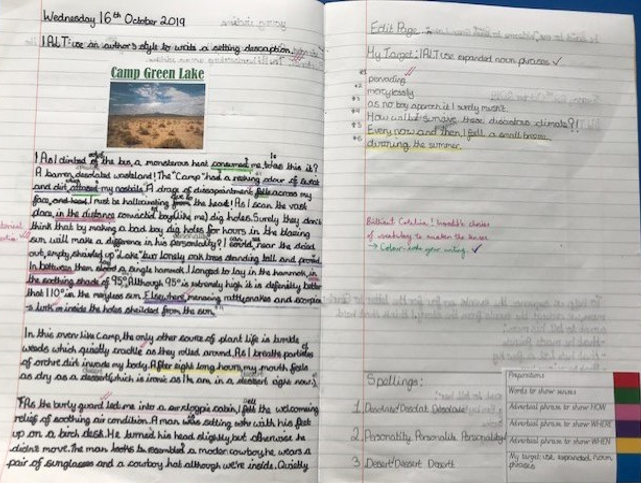 Wednesday 16th October 2019
IALT: use an author's style to write a setting description.
Camp Green Lake
As I climbed off the bus, a monsterous heat consumed me, is this it?
A barren, desolated wasteland! The "Camp" had a reeking odour of sweat
and dirt, attacked my nostrils. A drage of dissapointment fell across my
face, and heart. I must be hallucinating from the heat! As I scan the vast
place, in the distance convicted boy (like me) dig holes. Surely they don't
think that by making a bad boy dig holes for hours in the blazing
sun will make a difference in his personality? I saw, near the dried
out, empty, shriveled up "Lake" two lonely oak trees standing tall and proud.
In between them a single hammock. I longed to lay in the hammock, in
the soothing shade of 95°. Although 95° is extremely high it is definitely better
that 110° in the rayless sun. Elsewhere, menacing rattlesnakes and scorpio
-s lurk in inside the holes sheilded from the sun.
In this oven like Camp, the only other source of plant life is tumble
weeds which quietly crackle as they rolled around. As I breathe particles
of orchre dirt invade my body. After eight long hours, my mouth feels
as dry as a dessert (which is ironic as I am in a dessert right now).
As the burly guard led me into a cabin, I felt the welcoming
relief of soothing air condition. A man was sitting with his feet
up on a birch desk. He turned his head slightly but otherwise he
didn't move. The man resembled a modern cowboy, he wears a
pair of sunglasses and a cowboy hat although we're inside. Quietly
Edit Page
My Target: IALT use expanded noun phrases ✓
pervading
mercylessly
as no boy approach it I surely mustn't.
How will I survive these disastrous climate?!
Every now and then, I feel a small breeze
during the summer.
Brilliant ! Incredible choice
of vocabulary to
→ Colour-code your writing. ✓
Spellings:
1 Desolate Desolate Desolate
2 Personality Personality Personality
3 Desert Desert Desert
Prepositions
Words to show senses
Adverbial phrase to show HOW
Adverbial phrase to show WHERE
Adverbial phrase to show WHEN
My target: use expanded noun
phrases